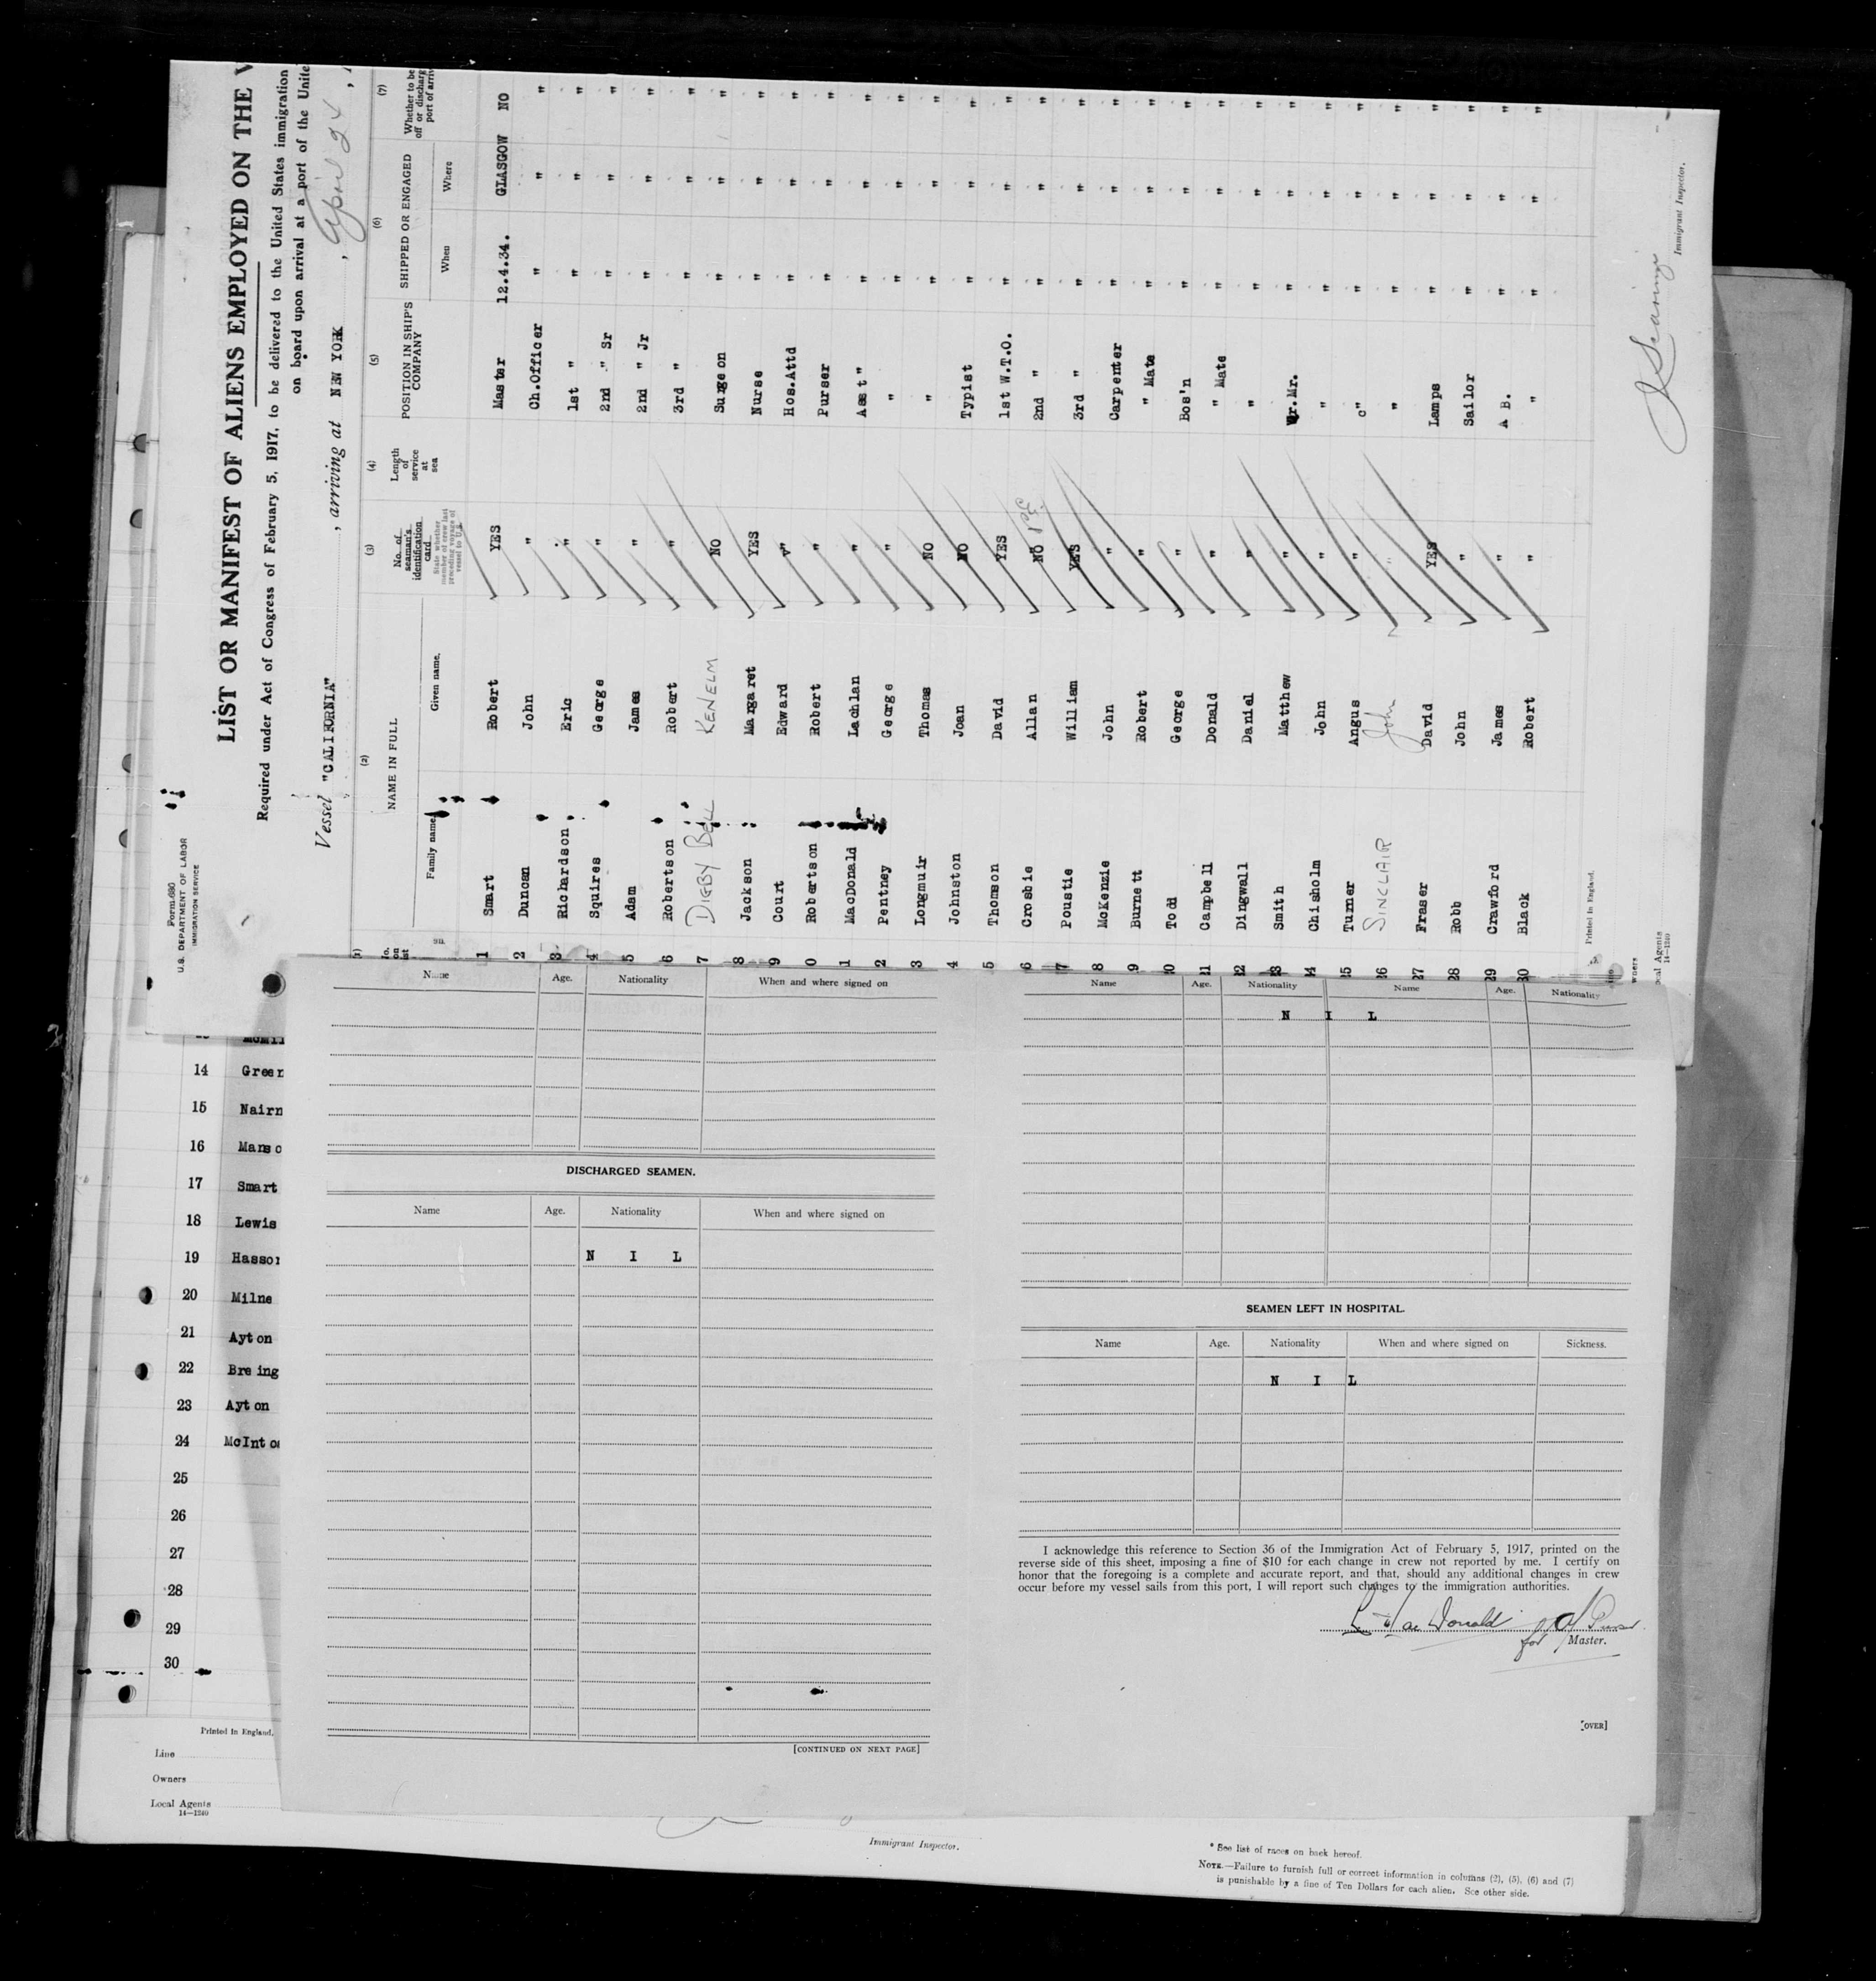 Form 680
U.S. DEPARTMENT OF LABOR
IMMIGRATION SERVICE
LIST OR MANIFEST OF ALIENS EMPLOYED ON THE
Required under Act of Congress of February 5, 1917, to be delivered to the United States immigration
on board upon arrival at a port of the Unite
Vessel "CALIFORNIA" , arriving at NEW YORK , April 24 ,
(1) (2) (3) (4) (5) (6) (7)
NAME IN FULL
Family name Given name.
No. of seaman's identification card
State whether member of crew last preceding voyage of vessel to U.S.
Length of service at sea
POSITION IN SHIP'S COMPANY
SHIPPED OR ENGAGED
When Where
Whether to be
off or discharg
port of arriv
1 Smart Robert YES Master 12.4.34. GLASGOW NO
2 Duncan John " Ch.Officer " " "
3 Richardson Eric " 1st " " " "
4 Squires George " 2nd " Sr " " "
5 Adam James " 2nd " Jr " " "
6 Robertson Robert " 3rd " " " "
7 DIGBY BELL KENELM NO Surgeon " " "
8 Jackson Margaret YES Nurse " " "
9 Court Edward " Hos.Attd " " "
0 Robertson Robert " Purser " " "
1 MacDonald Lachlan " Asst" " " "
2 Pentney George " " " " "
3 Longmuir Thomas NO " " " "
4 Johnston Joan NO Typist " " "
5 Thomson David YES 1st W.T.O. " " "
6 Crosbie Allan NO 2nd " " " "
7 Poustie William YES 3rd " " " "
8 McKenzie John " Carpenter " " "
9 Burnett Robert " " Mate " " "
20 Todd George " Bos'n " " "
21 Campbell Donald " " Mate " " "
22 Dingwall Daniel " " " " "
23 Smith Matthew " Qr.Mr. " " "
24 Chisholm John " " " " "
25 Turner Angus " " " " "
26 SINCLAIR John " " " " "
27 Fraser David YES Lamps " " "
28 Robb John " Sailor " " "
29 Crawford James " A B. " " "
30 Black Robert " " " " "
Printed in England.
wners
ocal Agents
14—1240
Immigrant Inspector.
14 Green
15 Nairn
16 Manso
17 Smart
18 Lewis
19 Hasson
20 Milne
21 Ayton
22 Breing
23 Ayton
24 McInto
25
26
27
28
29
30
Printed in England.
Line
Owners
Local Agents
14—1240
Name Age. Nationality When and where signed on
DISCHARGED SEAMEN.
Name Age. Nationality When and where signed on
N I L
[CONTINUED ON NEXT PAGE]
Name Age. Nationality Name Age. Nationality
N I L
SEAMEN LEFT IN HOSPITAL.
Name Age. Nationality When and where signed on Sickness.
N I L
I acknowledge this reference to Section 36 of the Immigration Act of February 5, 1917, printed on the
reverse side of this sheet, imposing a fine of $10 for each change in crew not reported by me. I certify on
honor that the foregoing is a complete and accurate report, and that, should any additional changes in crew
occur before my vessel sails from this port, I will report such changes to the immigration authorities.
L MacDonald Purser
for Master.
[OVER]
Immigrant Inspector.
* See list of races on back hereof.
NOTE.—Failure to furnish full or correct information in columns (2), (5), (6) and (7)
is punishable by a fine of Ten Dollars for each alien. See other side.